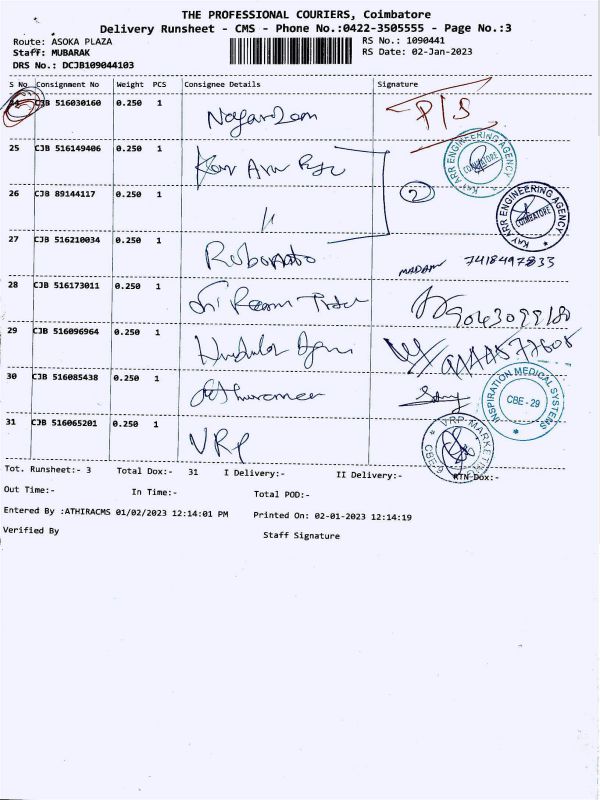 THE PROFESSIONAL COURIERS, Coimbatore
Delivery Runsheet - CMS - Phone No.:0422-3505555 - Page No.:3
Route: ASOKA PLAZA RS No.: 1090441
Staff: MUBARAK RS Date: 02-Jan-2023
DRS No.: DCJB109044103
S No Consignment No Weight PCS Consignee Details Signature
24 CJB 516030160 0.250 1 P/S
25 CJB 516149406 0.250 1 Kay Arr
KAY ARR ENGINEERING AGENCY COIMBATORE
26 CJB 89144117 0.250 1 〃 2
KAY ARR ENGINEERING AGENCY COIMBATORE
27 CJB 516210034 0.250 1 MADAM 7418497833
28 CJB 516173011 0.250 1 Sri Raam 9043099180
29 CJB 516096964 0.250 1
30 CJB 516085438 0.250 1
INSPIRATION MEDICAL SYSTEMS CBE - 29
31 CJB 516065201 0.250 1 VRP
VRP MARKETING CBE-9
Tot. Runsheet:- 3 Total Dox:- 31 I Delivery:- II Delivery:- RTN Dox:-
Out Time:- In Time:- Total POD:-
Entered By :ATHIRACMS 01/02/2023 12:14:01 PM Printed On: 02-01-2023 12:14:19
Verified By Staff Signature